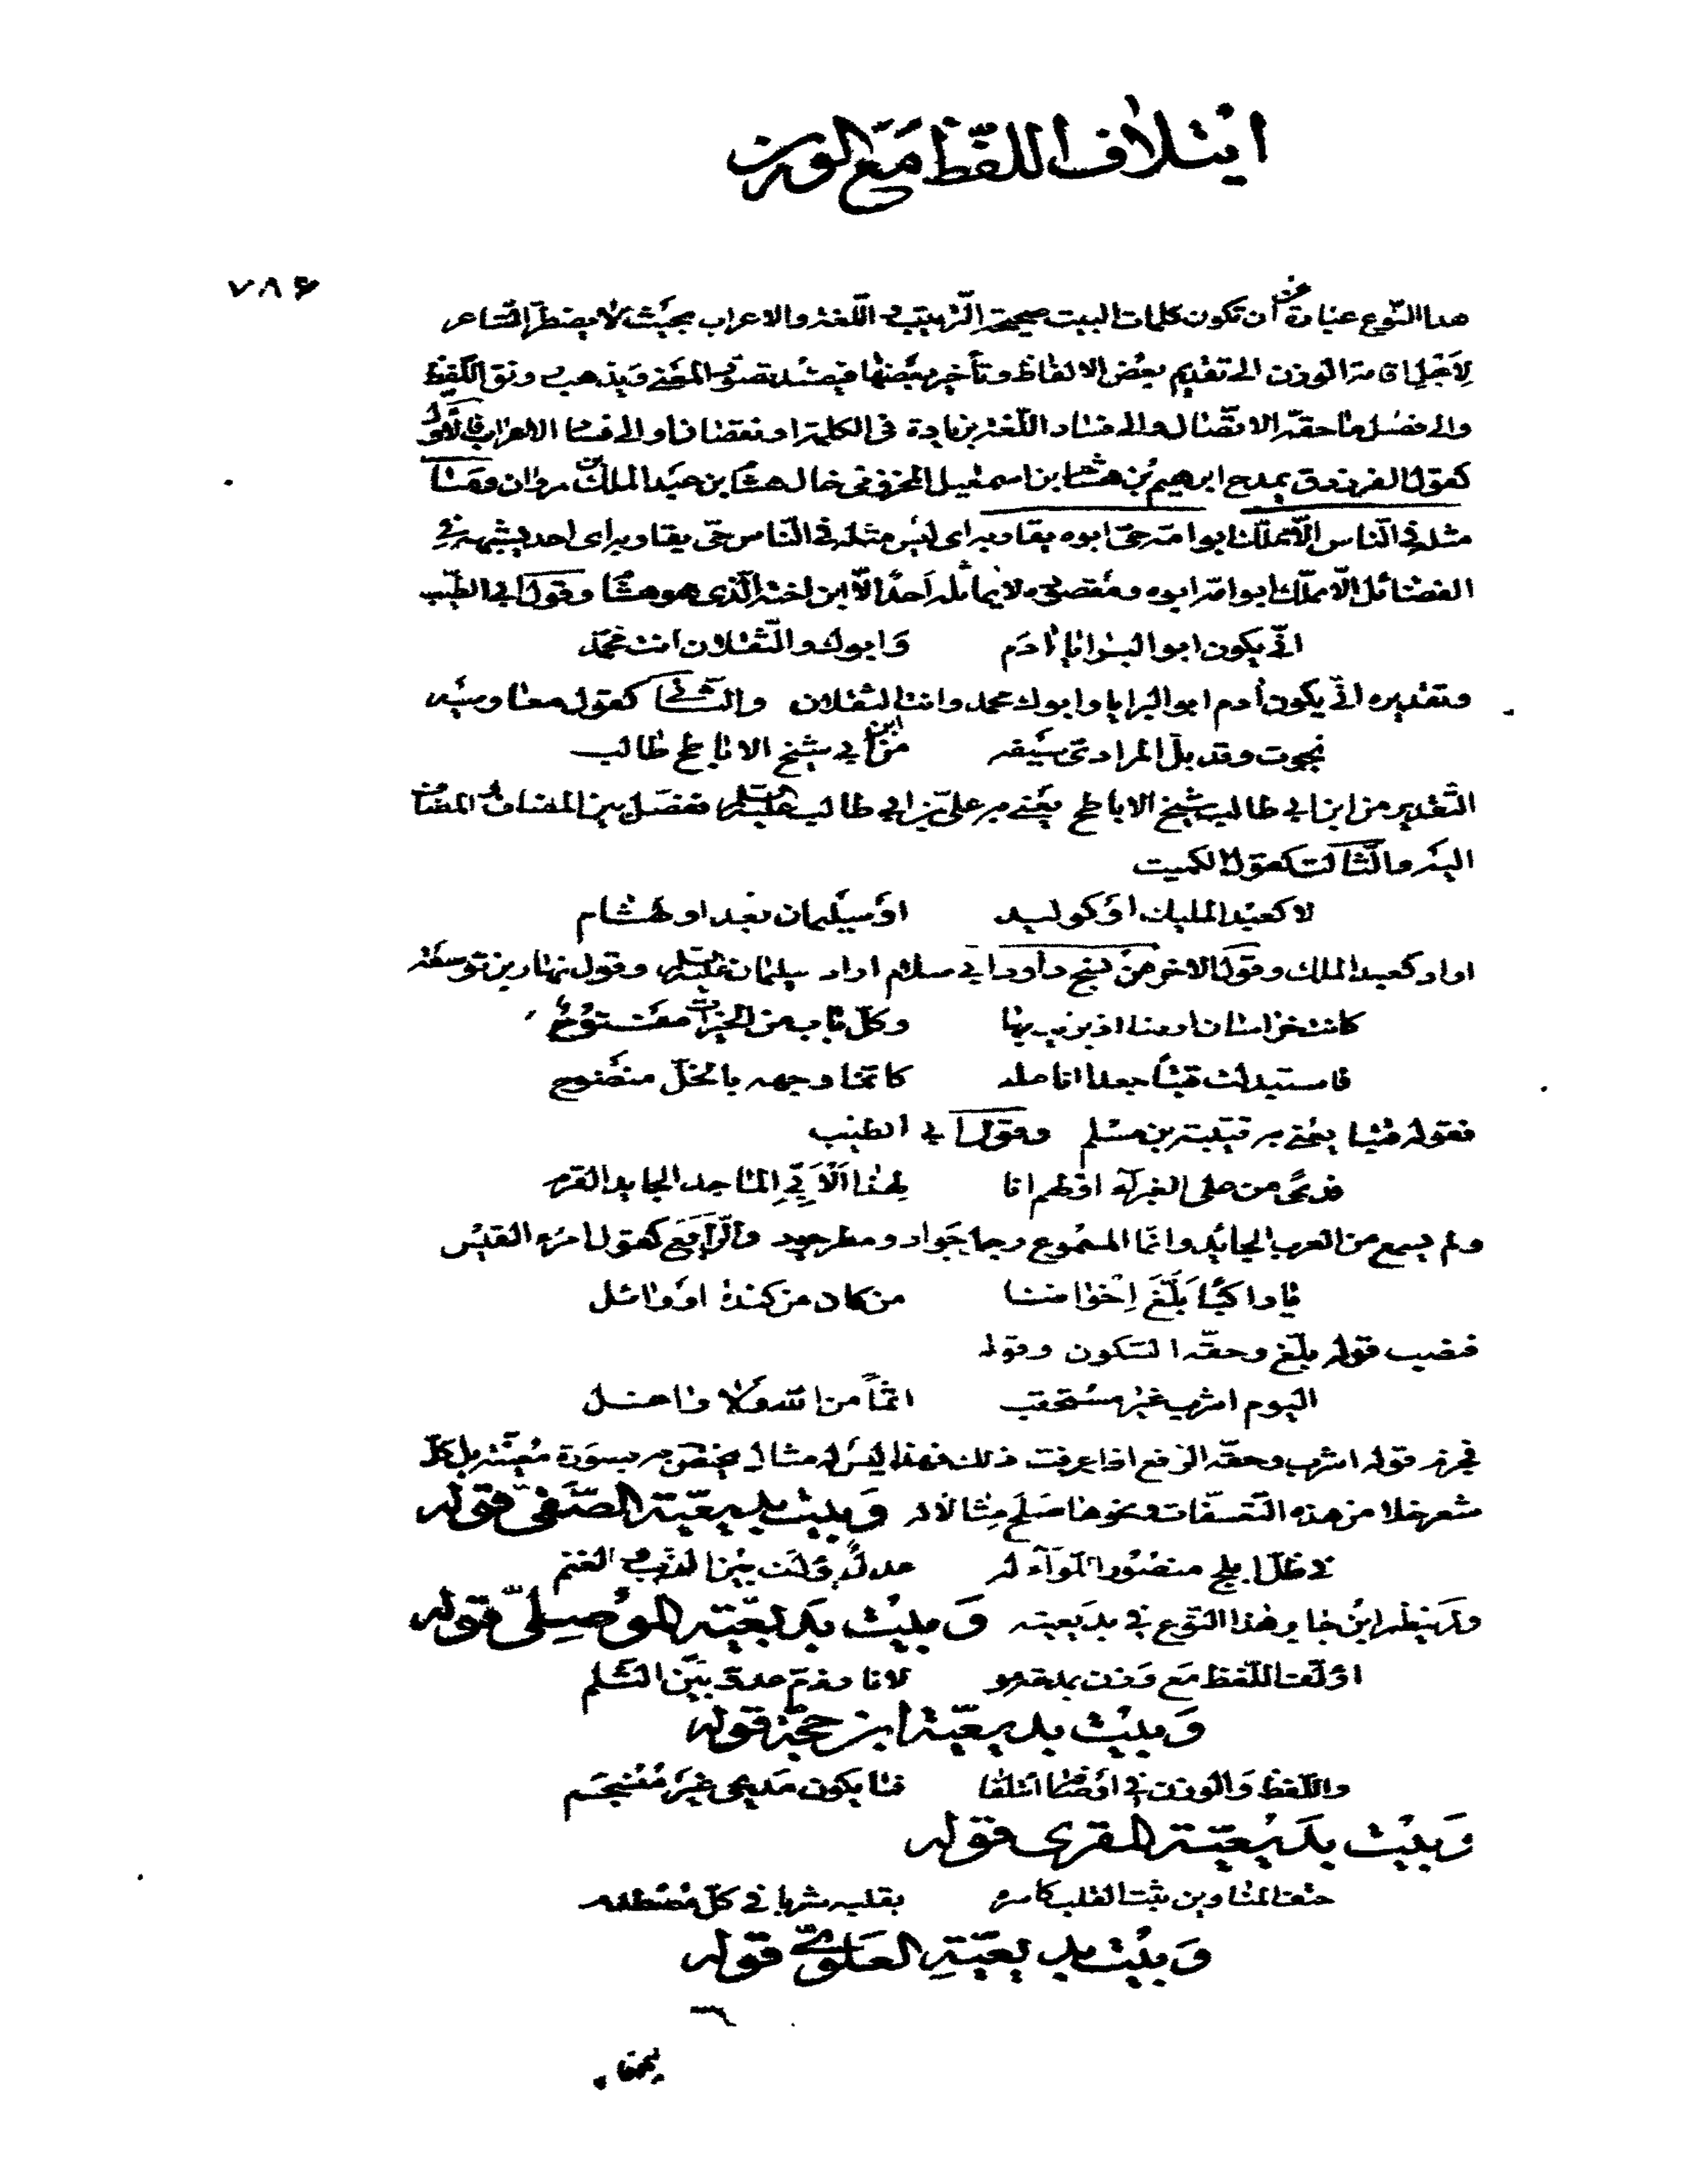 ائتلاف اللفظ مع الوزن
٧٨۶
هذا النوع عبارة عن أن تكون كلمات البيت صحيحة الترتيب في اللغة والاعراب بحيث لا يضطر الشاعر
لاجل اقامة الوزن الى تقديم بعض الالفاظ وتأخير بعضها فيفسد تصور المعنى ويذهب رونق اللفظ
والى فصل ما حقه الاتصال والى فساد اللغة بزيادة في الكلمة او نقصان او الى فساد الاعراب فالأول
كقول الفرزدق يمدح ابرهيم بن هشام بن اسمعيل المخزومي خال هشام بن عبد الملك بن مروان وما
مثله في الناس الا مملكا ابو امه حي ابوه يقاربه اى ليس مثله في الناس حي يقاربه اى احد يشبهه في
الفضائل الا مملك ابو امه ابوه ومقصوده لا يماثله احد الا ابن اخته الذى هو هشام وقول ابي الطيب
انى يكون ابو البرايا آدم وابوك والثقلان انت محمد
وتقديره انى يكون آدم ابو البرايا وابوك محمد وانت الثقلان والثاني كقول معاوية
نجوت وقد بل المرادي سيفه من ابن ابي شيخ الاباطح طالب
التقدير من ابن ابي طالب شيخ الاباطح يعني به علي بن ابي طالب عليه السلام ففصل بين المضاف والمضاف
اليه والثالث كقول الكميت
لا كعبد المليك او كوليد او سليمان بعد او كهشام
اراد كعبد الملك وقول الاخر من نسج داود ابي سلام اراد سليمان عليه السلام وقول نهار بن توسعة
كانت خراسان ارضا اذ يزيد بها وكل باب من الخيرات مفتوح
فاستبدلت قتبا جعدا انامله كانما وجهه بالخل منضوح
فقوله قتبا يعني به قتيبة بن مسلم وقول ابي الطيب
فدى من على الغبراء اولهم انا لهذا الأبي الماجد الجايد القرم
ولم يسمع من العرب الجائد وانما المسموع رجل جواد ومطر جود والرابع كقول امرء القيس
يا راكبا بلغ اخواننا من كان من كندة او وائل
فنصب قوله بلغ وحقه السكون وقوله
اليوم اشرب غير مستحقب اثما من الله ولا واغل
فجزم قوله اشرب وحقه الرفع اذا عرفت ذلك فهذا ليس له مثال يختص به بصورة معينة بل كل
شعر خلا من هذه التعسفات ونحوها صلح مثالا له وبيت بديعية الصفي قوله
في ظل ابلج منصور اللواء له عدل يؤلف بين الذئب والغنم
ولم ينظم ابن جابر هذا النوع في بديعيته وبيت بديعية الموصلي قوله
اؤلف اللفظ مع وزن بمدحة بين السلم
وبيت بديعية ابن حجة قوله
واللفظ والوزن في اوصافه ائتلفا فما يكون مديحي غير منسجم
وبيت بديعية المقري قوله
بقلبه في كل
وبيت بديعية العلوي قوله